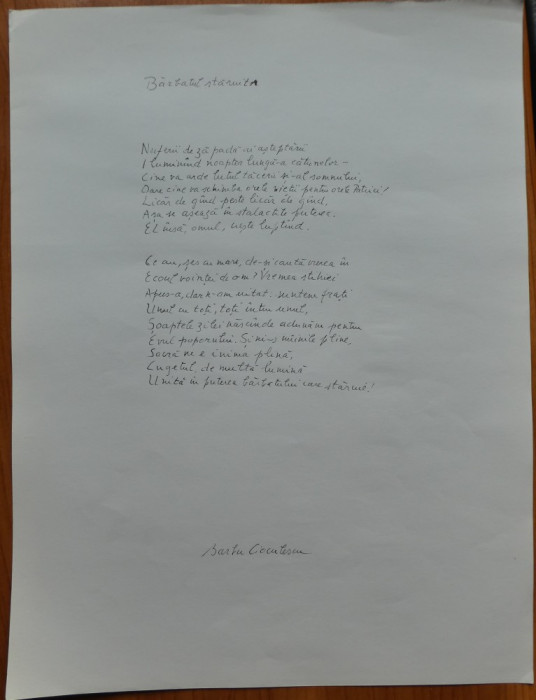 Bărbatul
Nuferi de zăpadă-ai așteptării
Iluminînd noaptea lungă-a cătunelor –
Cine va arde lutul tăcerii și-al somnului,
Oare cine va schimba orele vieții pentru orele Patriei!
Licăr de gînd peste licăr de gînd,
Așa se așează în stalactite putere.
El însă, omul, luptînd.
Ce mare, de-și caută vrerea în
Ecoul voinței de om? Vremea stihiei
Apus-a, dar n-am uitat: suntem frați
Unul cu toți, toți întru unul,
Șoaptele zilei născînde adunăm pentru
Evul poporului. Și ni-s mîinile pline,
Soră ne e inima plină,
Cugetul, de multă lumină
Unită în puterea bărbatului care stăruie!
Barbu Cioculescu